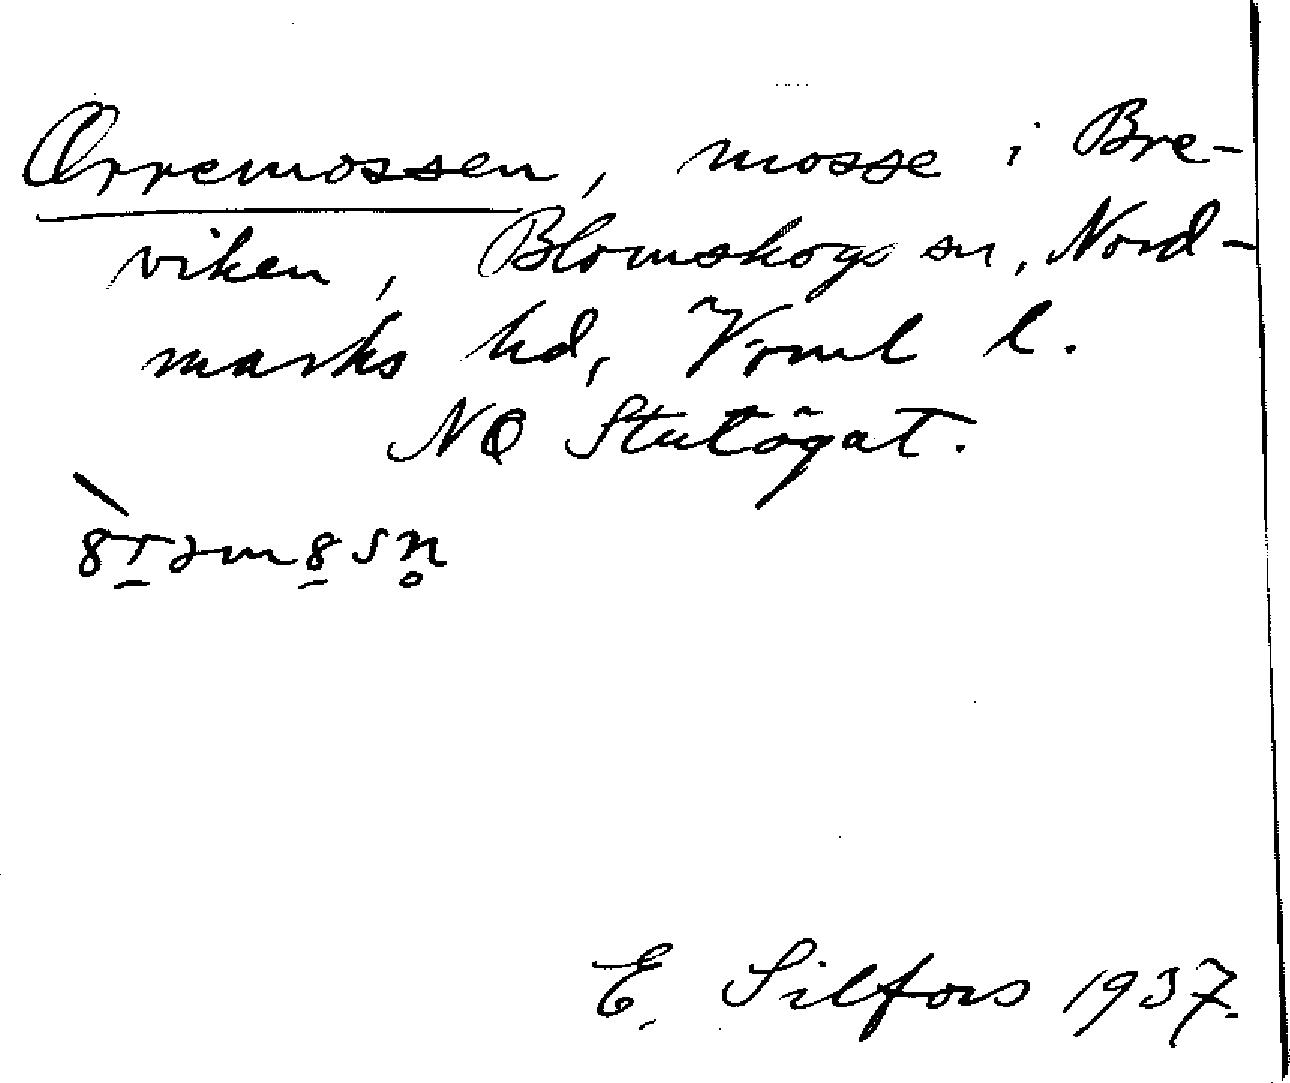 Orremossen, mosse i Bre-
viken, Blomskogs sn, Nord-
marks hd, Vrml l.
NO Stutögat.
E. Silfors 1937.